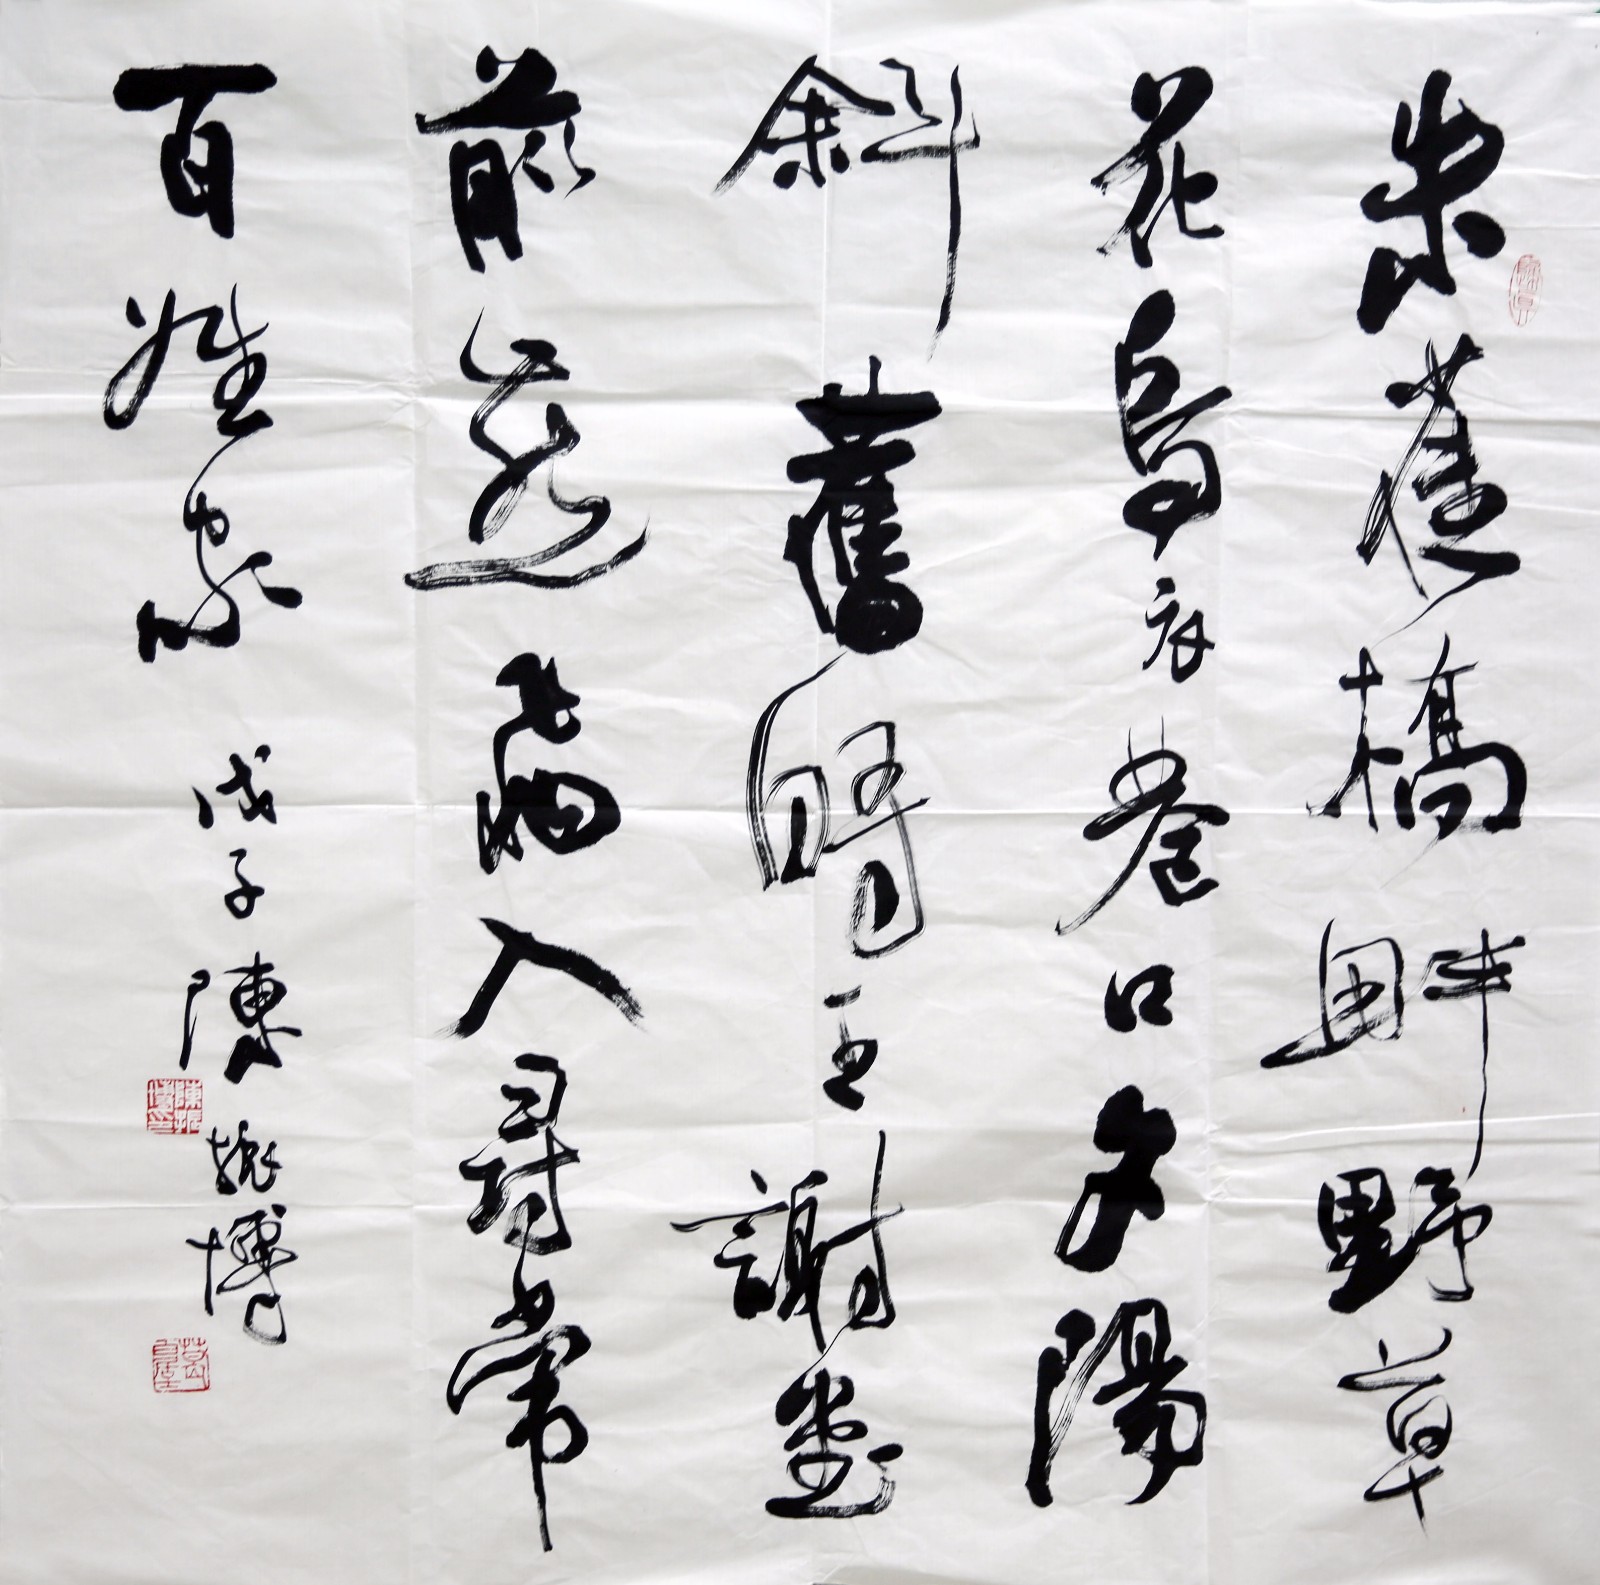 朱雀橋畔野草
花烏衣巷口夕陽
斜舊時王謝堂
前燕飛入尋常
百姓家 戊子陳振博
陳振博印